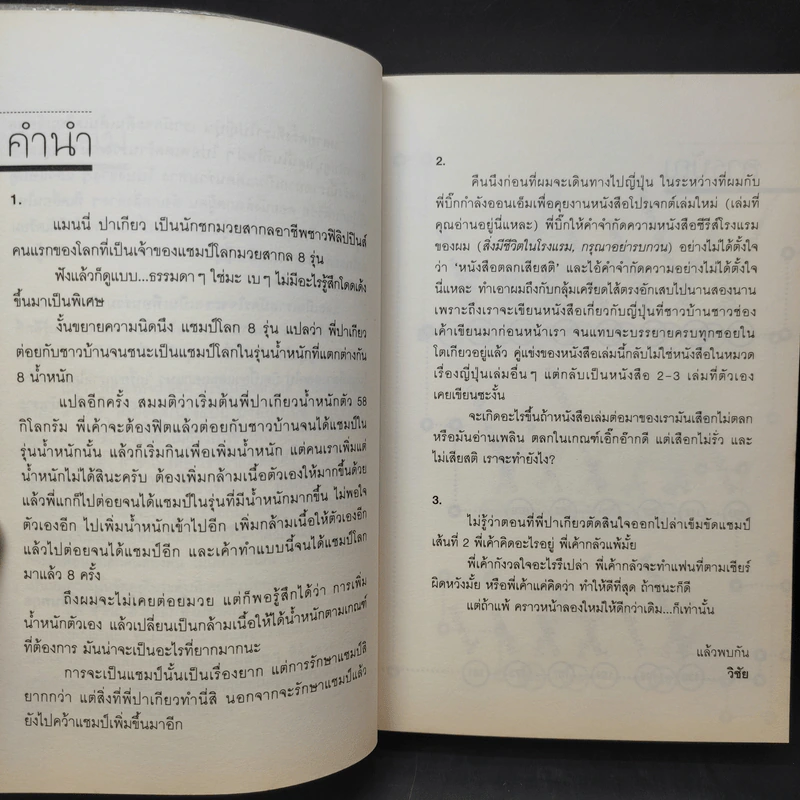 คำนำ
1.
แมนนี่ ปาเกียว เป็นนักชกมวยสากลอาชีพชาวฟิลิปปินส์
คนแรกของโลกที่เป็นเจ้าของแชมป์โลกมวยสากล 8 รุ่น
ฟังแล้วก็ดูแบบ...ธรรมดาๆ ใช่มะ เบๆ ไม่มีอะไรรู้สึกโดดเด้ง
ขึ้นมาเป็นพิเศษ
งั้นขยายความนิดนึง แชมป์โลก 8 รุ่น แปลว่า พี่ปาเกียว
ต่อยกับชาวบ้านจนชนะเป็นแชมป์โลกในรุ่นน้ำหนักที่แตกต่างกัน
8 น้ำหนัก
แปลอีกครั้ง สมมติว่าเริ่มต้นพี่ปาเกียวน้ำหนักตัว 58
กิโลกรัม พี่เค้าจะต้องฟิตแล้วต่อยกับชาวบ้านจนได้แชมป์ใน
รุ่นน้ำหนักนั้น แล้วก็เริ่มกินเพื่อเพิ่มน้ำหนัก แต่คนเราเพิ่มแต่
น้ำหนักไม่ได้สินะครับ ต้องเพิ่มกล้ามเนื้อตัวเองให้มากขึ้นด้วย
แล้วพี่แกก็ไปต่อยจนได้แชมป์ในรุ่นที่มีน้ำหนักมากขึ้น ไม่พอใจ
ตัวเองอีก ไปเพิ่มน้ำหนักเข้าไปอีก เพิ่มกล้ามเนื้อให้ตัวเองอีก
แล้วไปต่อยจนได้แชมป์อีก และเค้าทำแบบนี้จนได้แชมป์โลก
มาแล้ว 8 ครั้ง
ถึงผมจะไม่เคยต่อยมวย แต่ก็พอรู้สึกได้ว่า การเพิ่ม
น้ำหนักตัวเอง แล้วเปลี่ยนเป็นกล้ามเนื้อให้ได้น้ำหนักตามเกณฑ์
ที่ต้องการ มันน่าจะเป็นอะไรที่ยากมากนะ
การจะเป็นแชมป์นั้นเป็นเรื่องยาก แต่การรักษาแชมป์สิ
ยากกว่า แต่สิ่งที่พี่ปาเกียวทำนี่สิ นอกจากจะรักษาแชมป์แล้ว
ยังไปคว้าแชมป์เพิ่มขึ้นมาอีก
2.
คืนนึงก่อนที่ผมจะเดินทางไปญี่ปุ่น ในระหว่างที่ผมกับ
พี่บิ๊กกำลังออนเอ็มเพื่อคุยงานหนังสือโปรเจกต์เล่มใหม่ (เล่มที่
คุณอ่านอยู่นี่แหละ) พี่บิ๊กให้คำจำกัดความหนังสือซีรีส์โรงแรม
ของผม (สิ่งมีชีวิตในโรงแรม, กรุณาอย่ารบกวน) อย่างไม่ได้ตั้งใจ
ว่า ‘หนังสือตลกเสียสติ’ และไอ้คำจำกัดความอย่างไม่ได้ตั้งใจ
นี่แหละ ทำเอาผมถึงกับกลุ้มเครียดไส้ตรงอักเสบไปนานสองนาน
เพราะถึงเราจะเขียนหนังสือเกี่ยวกับญี่ปุ่นที่ชาวบ้านชาวช่อง
เค้าเขียนมาก่อนหน้าเรา จนแทบจะบรรยายครบทุกซอยใน
โตเกียวอยู่แล้ว คู่แข่งของหนังสือเล่มนี้กลับไม่ใช่หนังสือในหมวด
เรื่องญี่ปุ่นเล่มอื่นๆ แต่กลับเป็นหนังสือ 2-3 เล่มที่ตัวเอง
เคยเขียนซะงั้น
จะเกิดอะไรขึ้นถ้าหนังสือเล่มต่อมาของเรามันเสือกไม่ตลก
หรือมันอ่านเพลิน ตลกในเกณฑ์เอิ๊กอ๊ากดี แต่เสือกไม่รั่ว และ
ไม่เสียสติ เราจะทำยังไง?
3.
ไม่รู้ว่าตอนที่พี่ปาเกียวตัดสินใจออกไปล่าเข็มขัดแชมป์
เส้นที่ 2 พี่เค้าคิดอะไรอยู่ พี่เค้ากลัวแพ้มั้ย
พี่เค้ากังวลใจอะไรรึเปล่า พี่เค้ากลัวจะทำแฟนที่ตามเชียร์
ผิดหวังมั้ย หรือพี่เค้าแค่คิดว่า ทำให้ดีที่สุด ถ้าชนะก็ดี
แต่ถ้าแพ้ คราวหน้าลองใหม่ให้ดีกว่าเดิม...ก็เท่านั้น
แล้วพบกัน
วิชัย